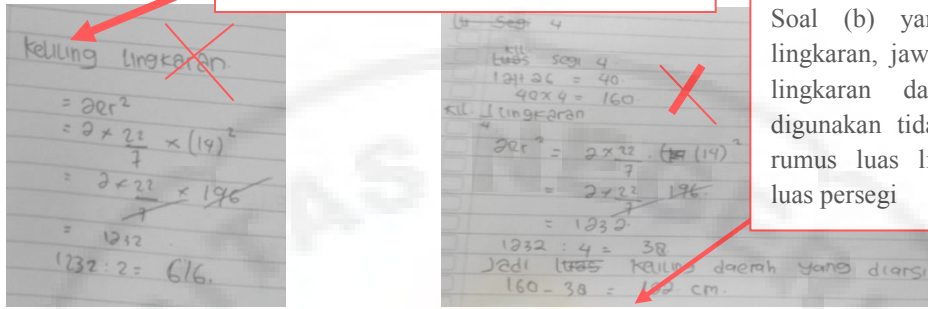 Keliling lingkaran
= 2πr²
= 2 × 22/7 × (14)²
= 2 × 22/7 × 196
= 1232
1232 : 2 = 616.
segi 4
Kll
Luas segi 4
14 + 26 = 40
40 × 4 = 160
Kll. 1/4 lingkaran
2πr² = 2 × 22/7 . (14)²
= 2 × 22/7 196
= 1232
1232 : 4 = 38
Jadi luas keliling daerah yang diarsi
160 - 38 = 122 cm.
Soal (b) yan
lingkaran, jaw
lingkaran da
digunakan tida
rumus luas li
luas persegi